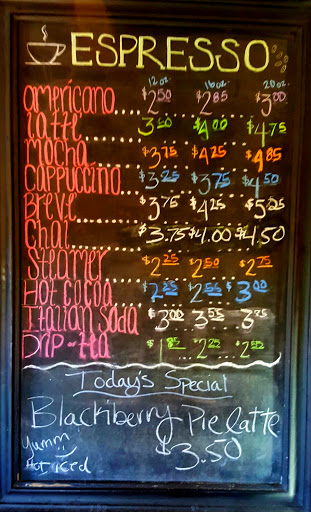 ESPRESSO
12 oz. 16 oz. 20 oz.
americano $2.50 $2.85 $3.00
Latte 3.50 $4.00 $4.75
Mocha $3.75 $4.25 $4.85
Cappuccino $3.25 $3.75 $4.50
Breve $3.75 $4.25 $5.25
Chai $3.75 $4.00 $4.50
Steamer $2.25 $2.50 $2.75
Hot Cocoa $2.25 $2.55 $3.00
Italian Soda $3.00 3.55 3.75
Drip - tea $1.85 $2.25 $2.55
Today's Special
Blackberry Pie latte
Yumm $3.50
Hot iced